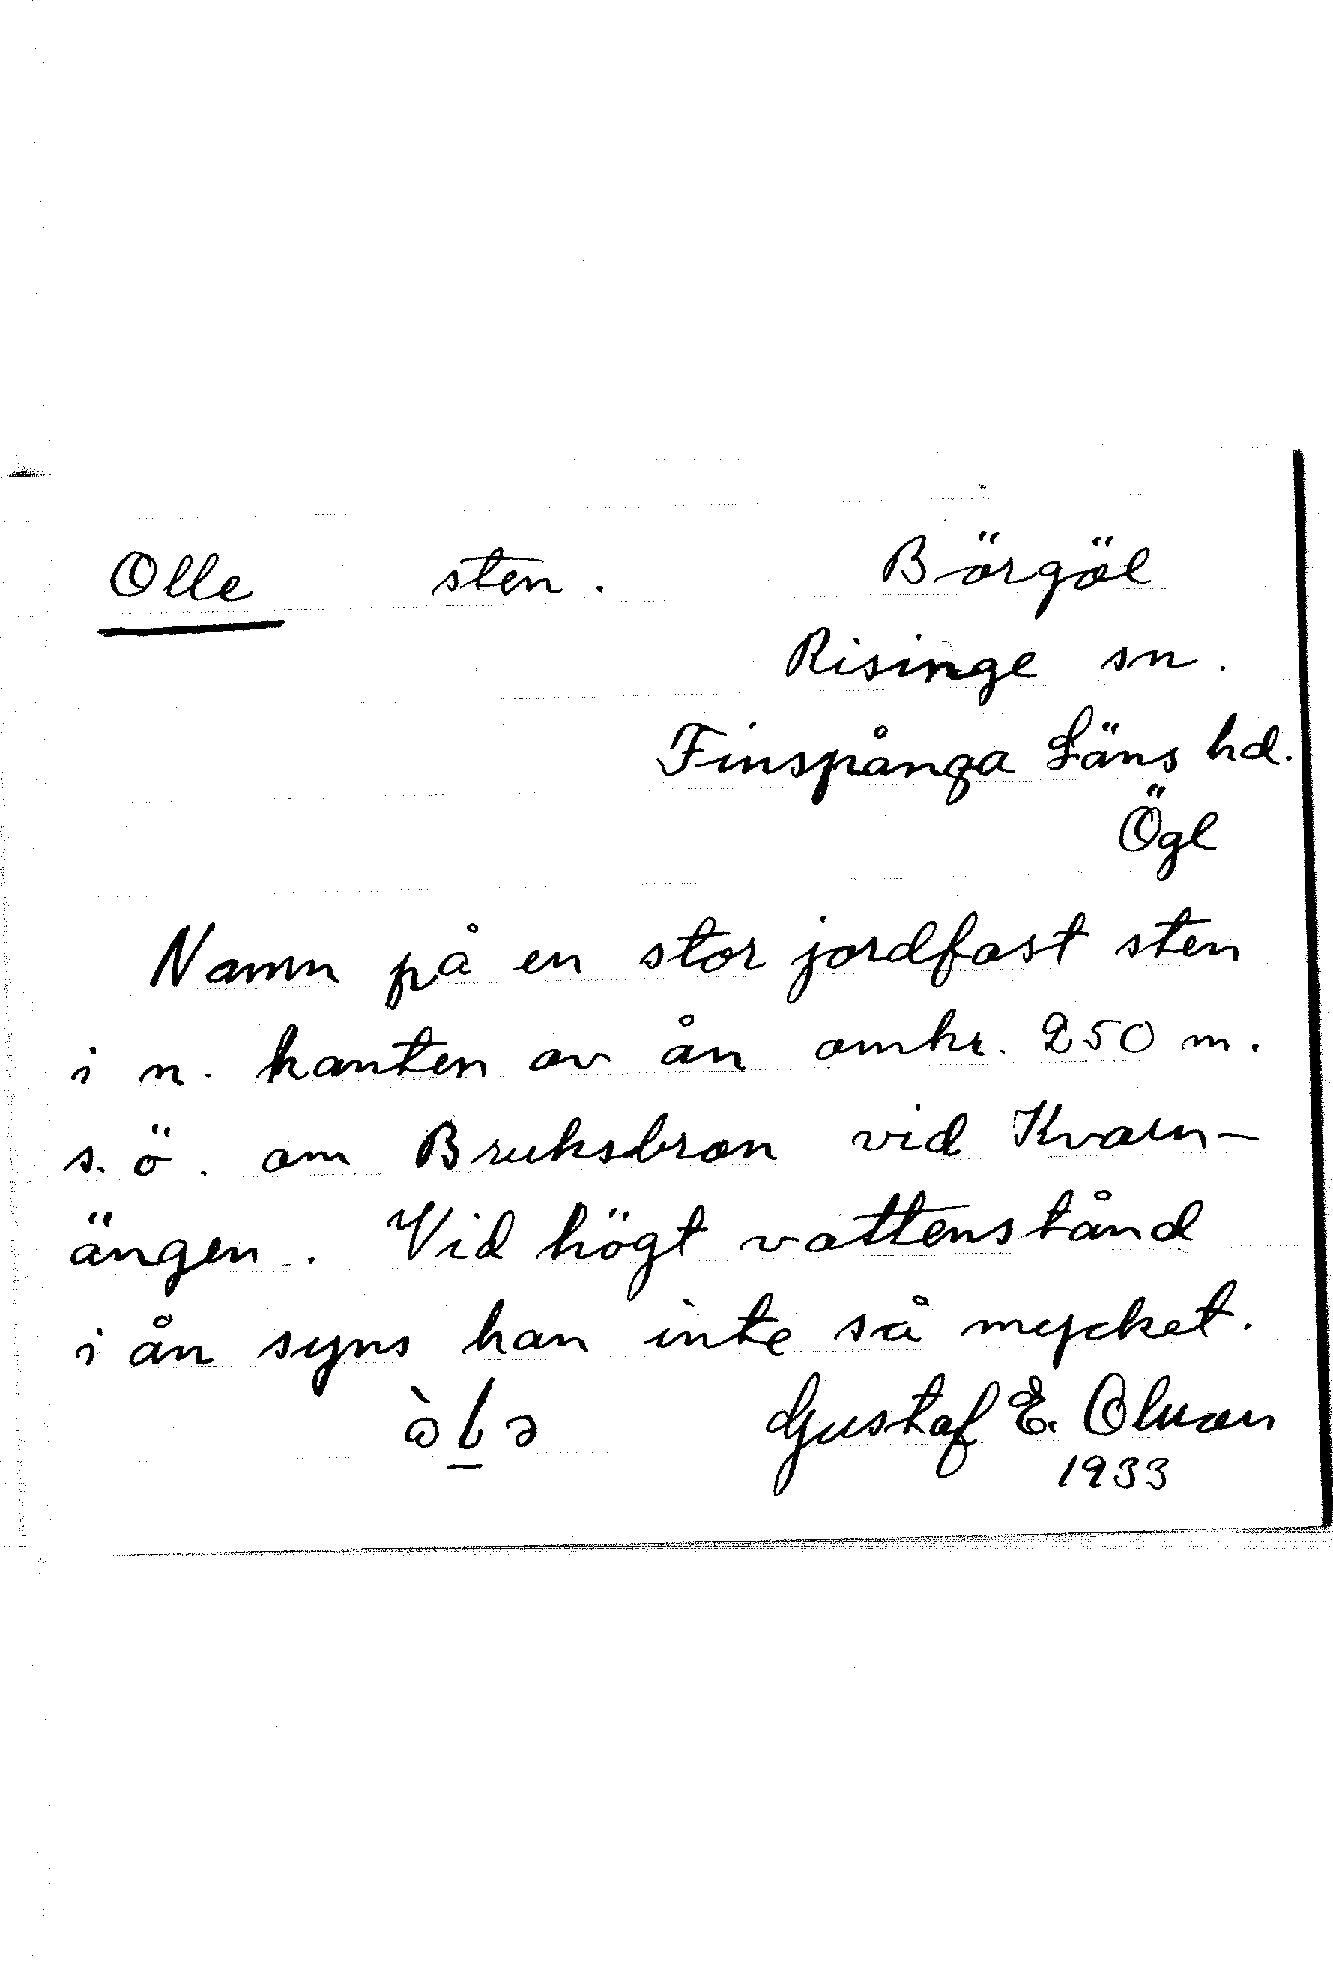 Olle sten. Börgöl
Risinge sn.
Finspånga Läns hd.
Ögl
Namn på en stor jordfast sten
i n. kanten av ån omkr. 250 m.
s. ö. om Bruksbron vid Kvarn-
ängen. Vid högt vattenstånd
i ån syns han inte så mycket.
Gustaf E.
1933